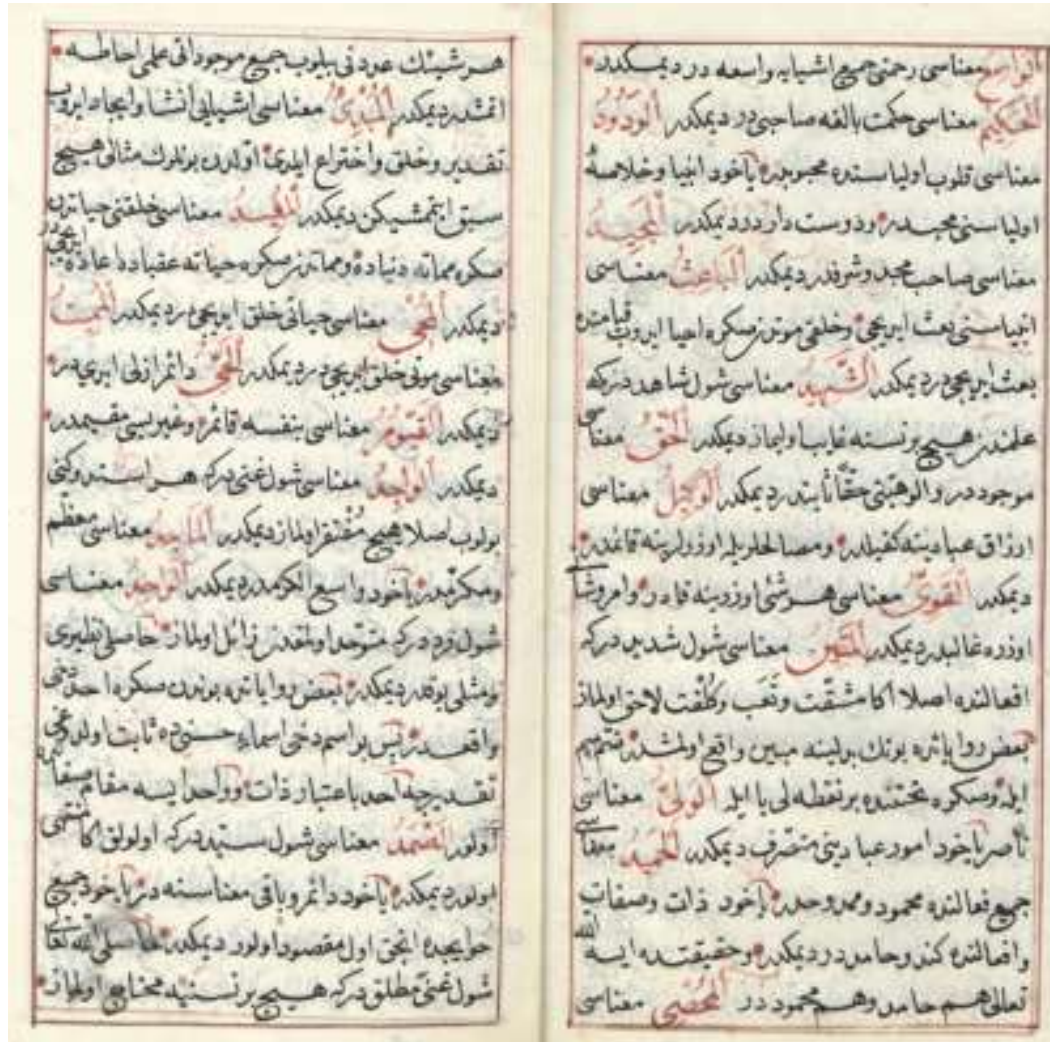 الواسع معناسی رحمتی جمیع اشیایه واسعه در دیمكدر
الحكيم معناسی حكمت بالغه صاحبی در دیمكدر الودود
معناسی قلوب اولیاسنده محبوبدر یاخود انبیا وخلاصهٔ
اولیاسنی محبدر ودوست دار در دیمكدر المجيد
معناسی صاحب مجد وشرفدر دیمكدر الباعث معناسی
انبیاسنی بعث ایدیجی وخلقی موتدن صكره احیا ایدوب قیامتده
بعث ایدیجی در دیمكدر الشهيد معناسی شول شاهددركه
علمندن هیچ بر نسنه غایب اولماز دیمكدر الحق معناسی
موجوددر والوهیتی حقا ثابتدر دیمكدر الوكيل معناسی
ارزاق عبادینه كفیلدر ومصالحلریله اوزرلرینه قائمدر
دیمكدر القوى معناسی هر شئ اوزرینه قادر وامر وشان
اوزره غالبدر دیمكدر المتين معناسی شول شدیددركه
افعالنده اصلا اكا مشقت وتعب وكلفت لاحق اولماز
بعض روایاتده بونك یرلینه مبین واقع اولمشدر ضم میم
ایله وصكره تحتنده بر نقطه لی با ایله الولى معناسی
ناصر یاخود امور عبادینی متصرف دیمكدر الحميد معناسی
جمیع فعالنده محمود وممدوحدر یاخود ذات وصفات
وافعالنده كندو حامددر دیمكدر وحقیقتده ایسه الله
تعالی هم حامد وهم محمود در المحصى معناسی
هر شیئك عودنی بیلوب جمیع موجوداتی علمی احاطه
اتمشدر دیمكدر المبدئ معناسی اشیایی انشا وایجاد ایدوب
تقدیر وخلق واختراع ایلدی اولدن بونلرك مثالی هیچ
سبق ایتمشیكن دیمكدر المعيد معناسی خلقنی حیاتدن
صكره مماته دنیاده ومماتدن صكره حیاته عقباده اعاده ایدیجیدر
دیمكدر المحيى معناسی حیاتی خلق ایدیجی در دیمكدر المميت
معناسی موتی خلق ایدیجی در دیمكدر الحى دائم ازلی ابدی در
دیمكدر القيوم معناسی بنفسه قائم وغیریسی مقیمدر
دیمكدر الواجد معناسی شول غنی دركه هر استدوكنی
بولوب اصلا هیچ مفتقر اولماز دیمكدر الماجد معناسی معظم
ومكرمدر یاخود واسع الكرمدر دیمكدر الواحد معناسی
شول فرد دركه متوحد اولمقدن زائل اولماز حاصلی نظیری
ومثلی یوقدر دیمكدر بعض روایاتده بوندن صكره احد دخی
واقعدر پس بو اسم دخی اسماء حسنی ده ثابت اولدوغی
تقدیرجه احد باعتبار ذات وواحد ایسه مقام صفاتده
اولور الصمد معناسی شول سیددركه اولولق اكا منتهی
اولور دیمكدر یاخود دائم وباقی معناسنه در یاخود جمیع
حوایجده انجق اول مقصود اولور دیمكدر حاصلی الله تعالی
شول غنی مطلق دركه هیچ بر نسنیه محتاج اولماز